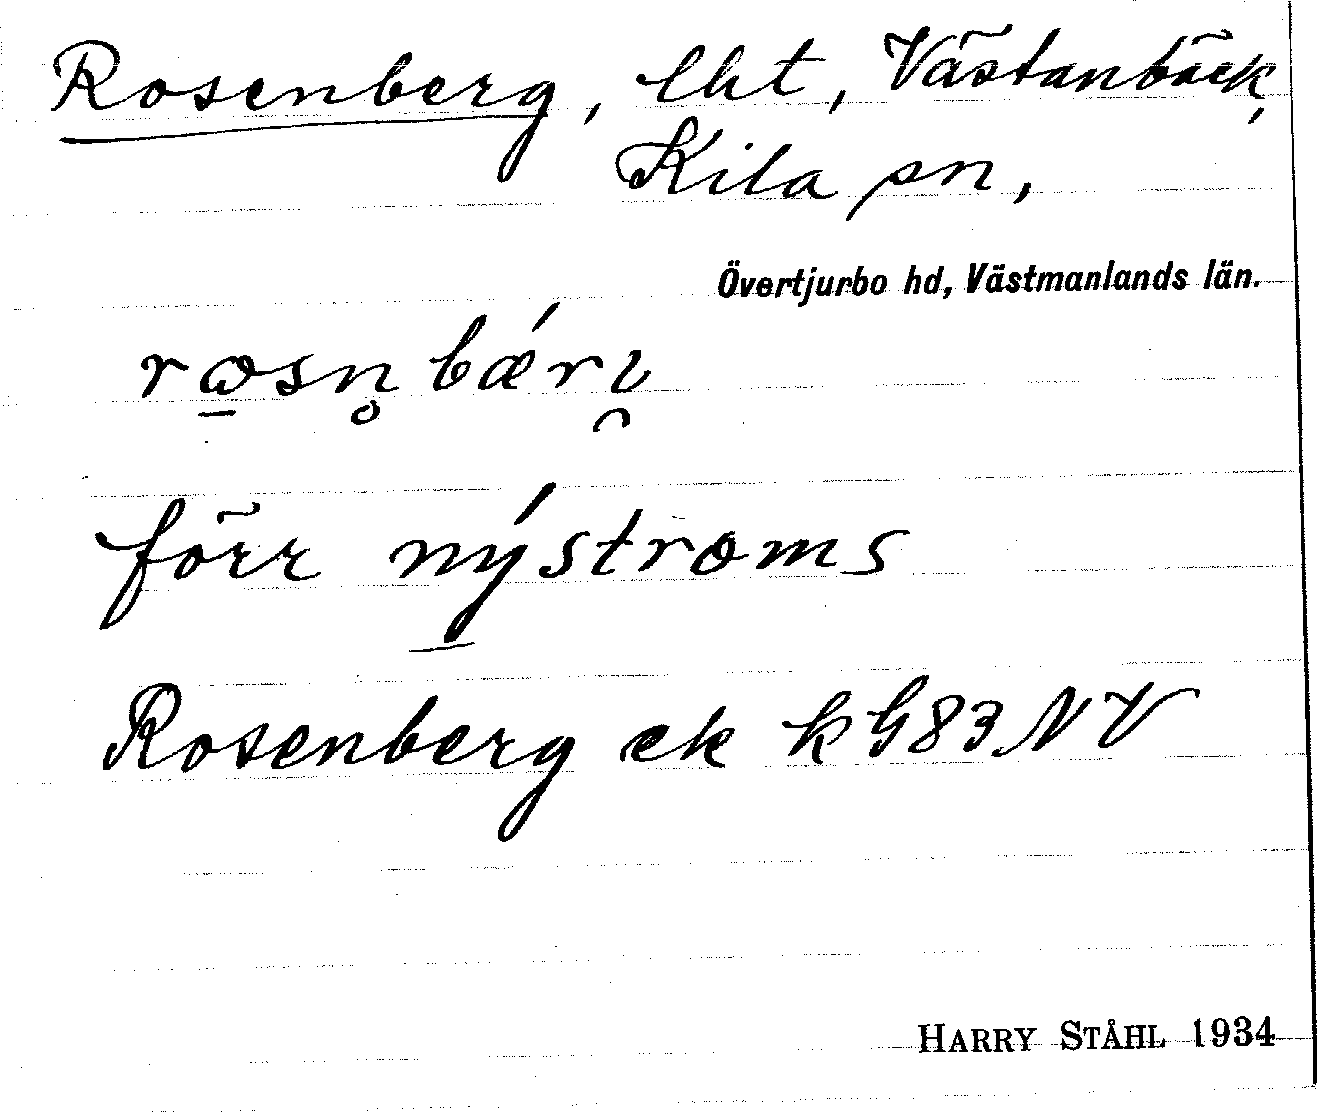 Rosenberg, lht, Västanbäck,
Kila sn,
Övertjurbo hd, Västmanlands län.
rɷ̲sn̥bǽrı̯
förr nýstroms
Rosenberg ek k G83 NV
HARRY STÅHL 1934